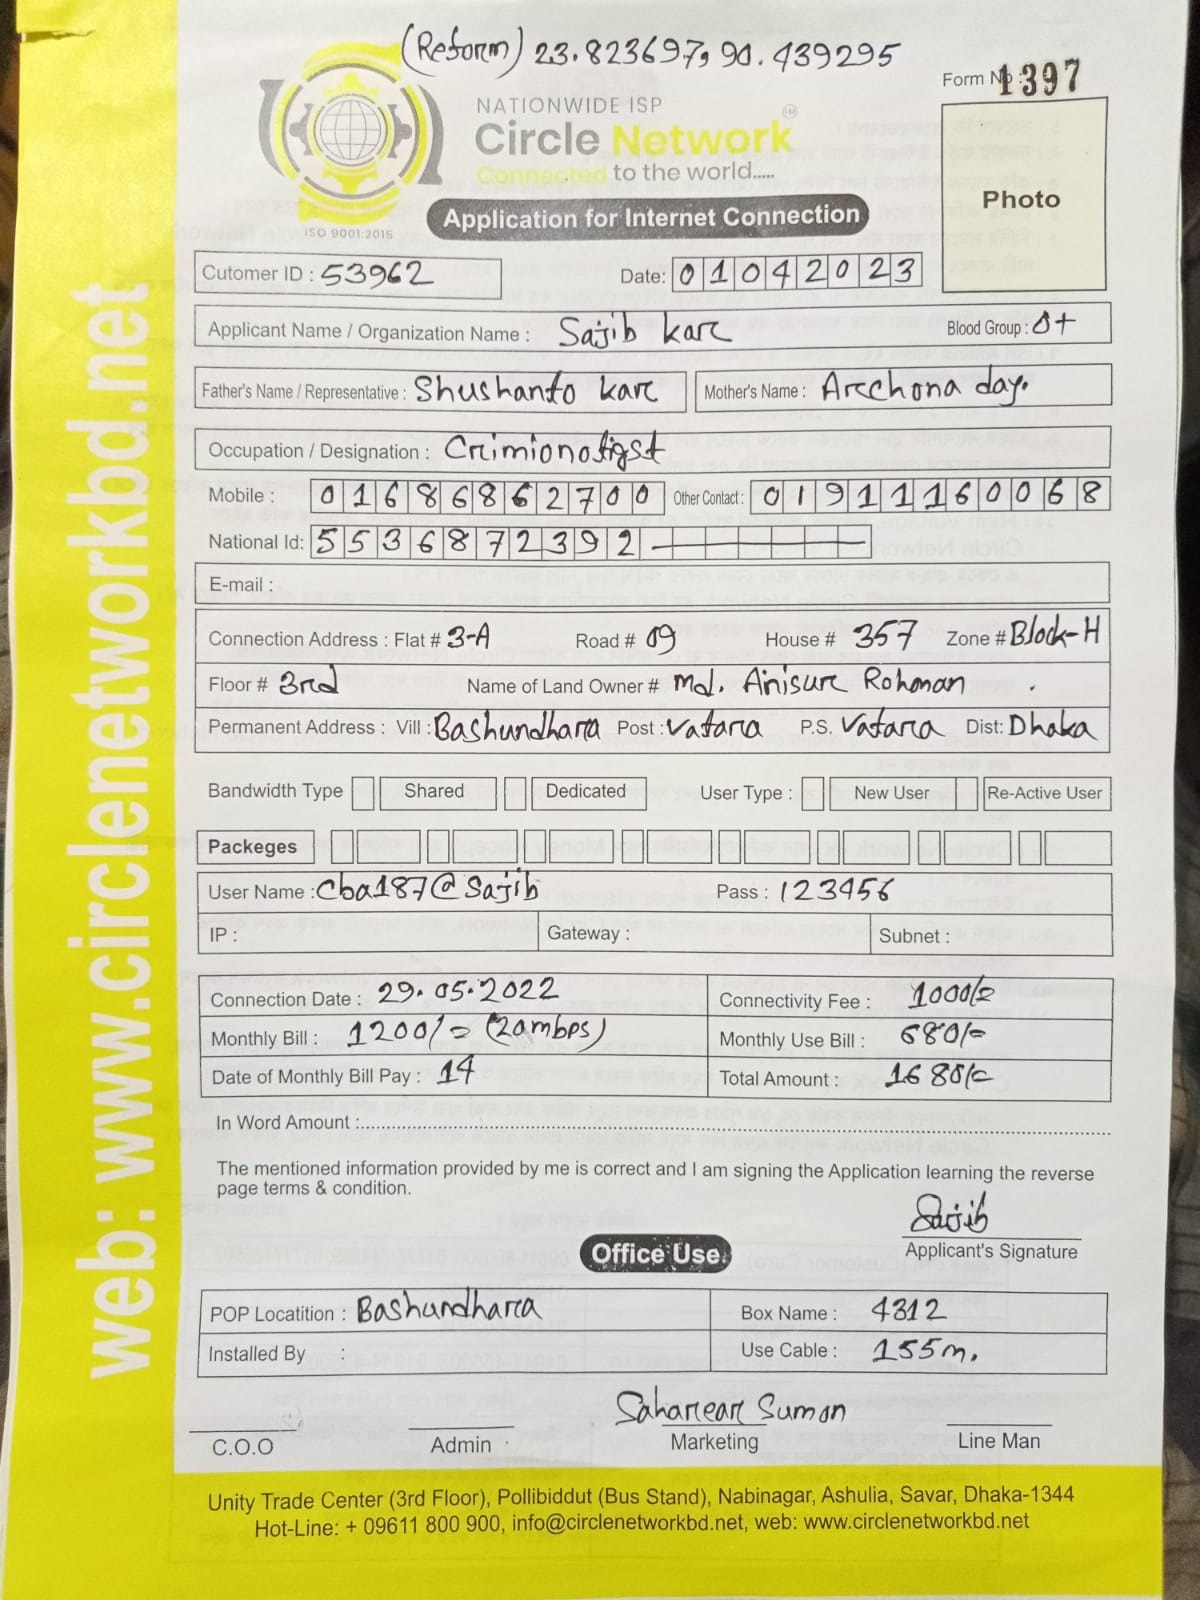 (Reform) 23.823697, 90.439295
Form No : 1397
NATIONWIDE ISP
Circle Network TM
Connected to the world.....
ISO 9001:2015
Application for Internet Connection
Photo
Cutomer ID : 53962 Date: 01042023
Applicant Name / Organization Name : Sajib Kar Blood Group : O+
Father's Name / Representative : Shushanto kar Mother's Name : Archona day.
Occupation / Designation : Crimionotigst
Mobile : 01686862700 Other Contact : 01911160068
National Id: 5536872392
E-mail :
Connection Address : Flat # 3-A Road # 09 House # 357 Zone # Block-H
Floor # 3rd Name of Land Owner # Md. Anisur Rohman
Permanent Address : Vill : Bashundhara Post : Vatara P.S. Vatara Dist: Dhaka
Bandwidth Type Shared Dedicated User Type : New User Re-Active User
Packeges
User Name : Cba187@Sajib Pass : 123456
IP : Gateway : Subnet :
Connection Date : 29.05.2022 Connectivity Fee : 1000/=
Monthly Bill : 1200/= (20mbps) Monthly Use Bill : 680/=
Date of Monthly Bill Pay : 14 Total Amount : 1680/=
In Word Amount :
The mentioned information provided by me is correct and I am signing the Application learning the reverse
page terms & condition.
Sajib
Applicant's Signature
Office Use
POP Locatition : Bashundhara Box Name : 4312
Installed By : Use Cable : 155m.
Saharear Sumon
C.O.O Admin Marketing Line Man
Unity Trade Center (3rd Floor), Pollibiddut (Bus Stand), Nabinagar, Ashulia, Savar, Dhaka-1344
Hot-Line: + 09611 800 900, info@circlenetworkbd.net, web: www.circlenetworkbd.net
web: www.circlenetworkbd.net